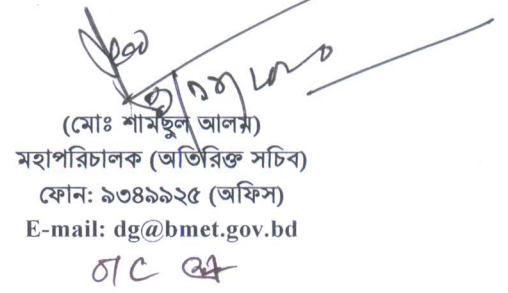 (মোঃ শামছুল আলম)
মহাপরিচালক (অতিরিক্ত সচিব)
ফোন: ৯৩৪৯৯২৫ (অফিস)
E-mail: dg@bmet.gov.bd